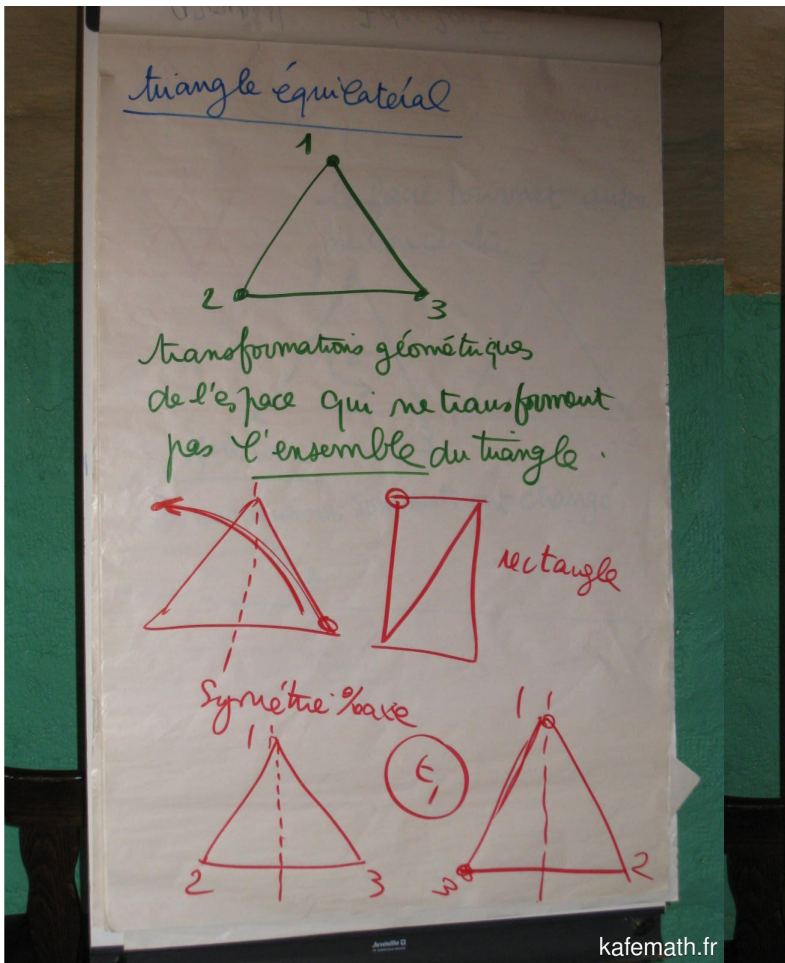 triangle équilatéral
1
2
3
transformations géométriques
de l'espace qui ne transforment
pas l'ensemble du triangle.
rectangle
Symétrie %axe
1
1
t1
2
3
3
2
kafemath.fr